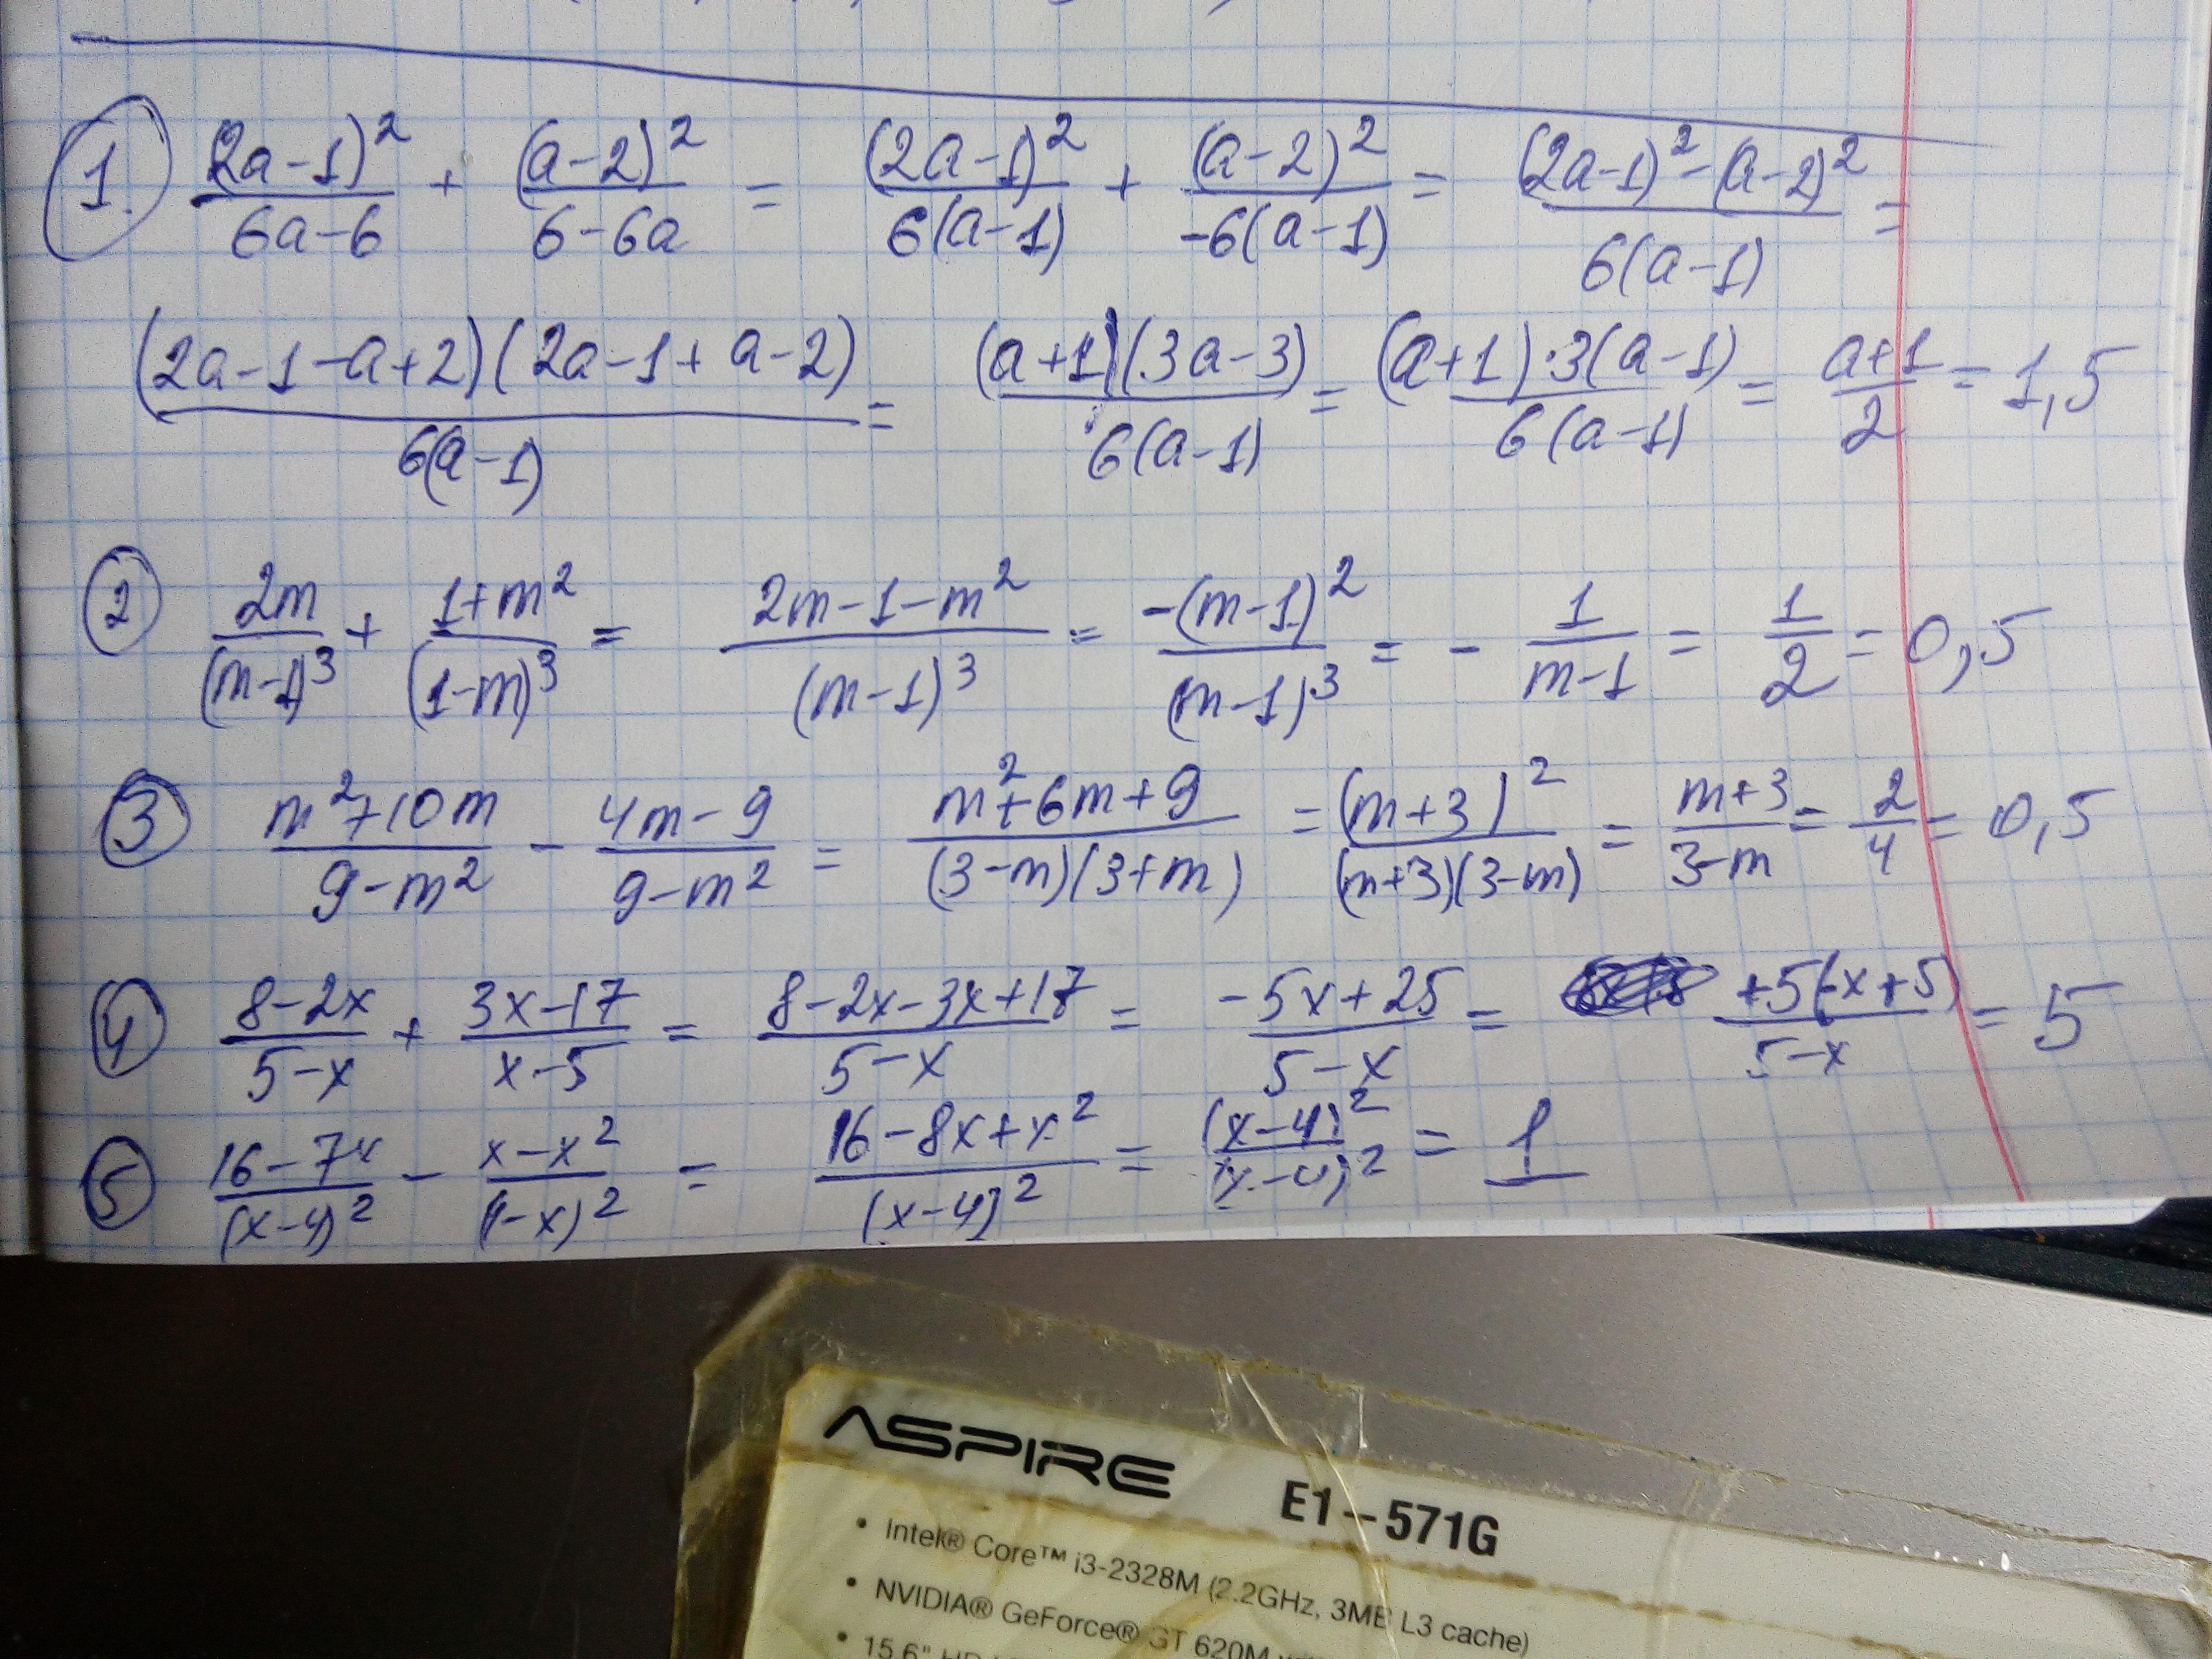 1. (2a-1)²/(6a-6) + (a-2)²/(6-6a) = (2a-1)²/(6(a-1)) + (a-2)²/(-6(a-1)) = ((2a-1)²-(a-2)²)/(6(a-1)) =
((2a-1-a+2)(2a-1+a-2))/(6(a-1)) = ((a+1)(3a-3))/(6(a-1)) = ((a+1)·3(a-1))/(6(a-1)) = (a+1)/2 = 1,5
2 2m/(m-1)³ + (1+m²)/(1-m)³ = (2m-1-m²)/(m-1)³ = -(m-1)²/(m-1)³ = - 1/(m-1) = 1/2 = 0,5
3 (m²+10m)/(9-m²) - (4m-9)/(9-m²) = (m²+6m+9)/((3-m)(3+m)) = (m+3)²/((m+3)(3-m)) = (m+3)/(3-m) = 2/4 = 0,5
4 (8-2x)/(5-x) + (3x-17)/(x-5) = (8-2x-3x+17)/(5-x) = (-5x+25)/(5-x) = +5(-x+5)/(5-x) = 5
5 (16-7x)/(x-4)² - (x-x²)/(4-x)² = (16-8x+x²)/(x-4)² = (x-4)²/(x-4)² = 1
ASPIRE E1-571G
• Intel® Core™ i3-2328M (2.2GHz, 3MB L3 cache)
• NVIDIA® GeForce® GT 620M
• 15.6" HD